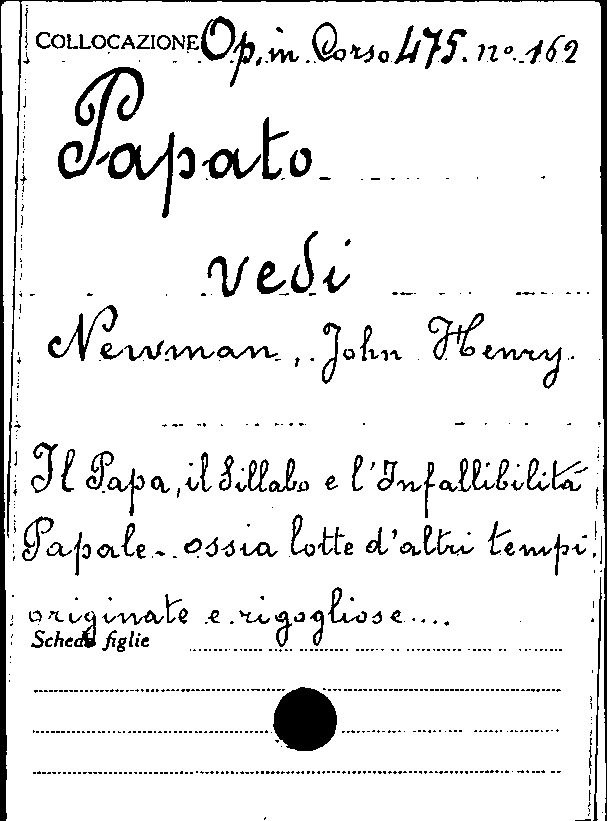 COLLOCAZIONE Op. in Corso 475. nº 162
Papato
vedi
Newman, John Henry.
Il Papa, il Sillabo e l'Infallibilità
Papale - ossia lotte d'altri tempi.
originate e rigogliose....
Schede figlie